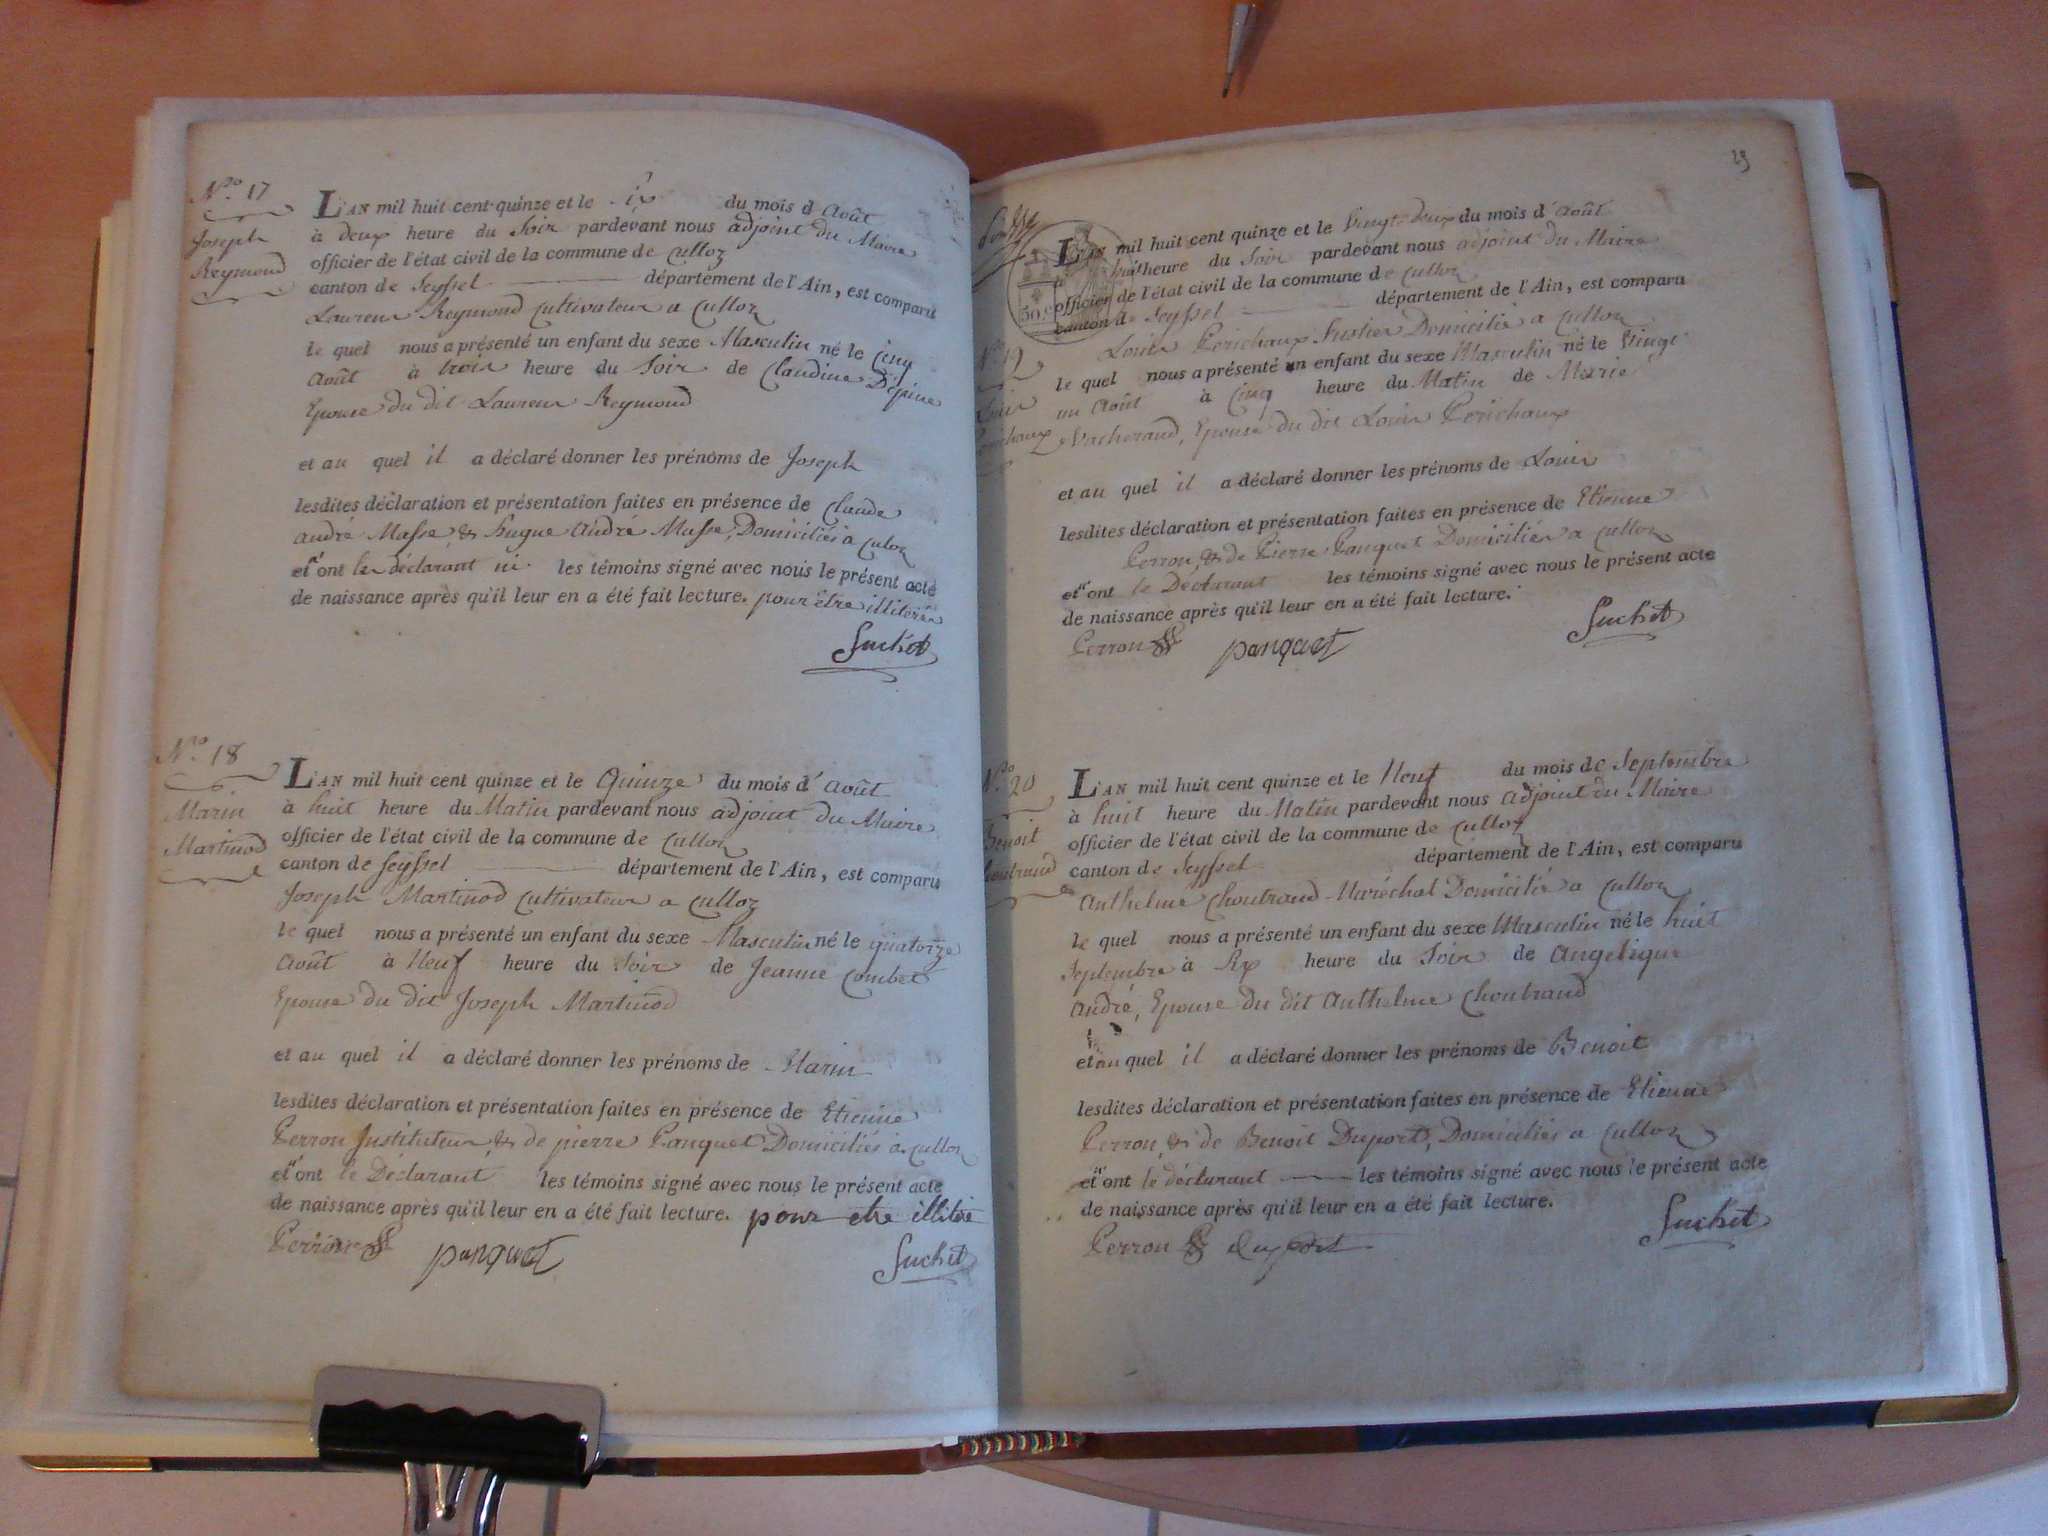 N.ro 17
Joseph
Reymond
L'AN mil huit cent quinze et le six du mois d'Août
à deux heure du Soir pardevant nous adjoint du Maire
officier de l'état civil de la commune de Culloz
canton de Seyssel département de l'Ain, est comparu
Laurent Reymond Cultivateur a Culloz
le quel nous a présenté un enfant du sexe Masculin né le Cinq
Août à trois heure du Soir de Claudine D'épine
Epouse du dit Laurent Reymond
et au quel il a déclaré donner les prénoms de Joseph
lesdites déclaration et présentation faites en présence de Claude
André Masse, & Hugue André Masse, Domiciliés à Culoz
et n'ont les déclarant ni les témoins signé avec nous le présent acte
de naissance après qu'il leur en a été fait lecture. pour être illiterés
Suchet
N.ro 18
Marin
Martinod
L'AN mil huit cent quinze et le Quinze du mois d'Août
à huit heure du Matin pardevant nous adjoint du Maire
officier de l'état civil de la commune de Culloz
canton de Seyssel département de l'Ain, est comparu
Joseph Martinod Cultivateur a Culloz
le quel nous a présenté un enfant du sexe Masculin né le quatorze
Août à Neuf heure du Soir de Jeanne Combet
Epouse du dit Joseph Martinod
et au quel il a déclaré donner les prénoms de Marin
lesdites déclaration et présentation faites en présence de Etienne
Perron Instituteur, & de pierre Panquet Domiciliés à Culloz
et n'ont le Déclarant les témoins signé avec nous le présent acte
de naissance après qu'il leur en a été fait lecture. pour etre illitéré
Perron panquet
Suchet
29
L'AN mil huit cent quinze et le Vingt-deux du mois d'Août
à huit heure du Soir pardevant nous adjoint du Maire
officier de l'état civil de la commune de Culloz
canton de Seyssel département de l'Ain, est comparu
50.C
N.ro 19
Louis
Perichaux
Louis Perichaux Domicilié a Culloz
le quel nous a présenté un enfant du sexe Masculin né le Vingt
un Août à Cinq heure du Matin de Marie
Vacherand, Epouse du dit Louis Perichaux
et au quel il a déclaré donner les prénoms de Louis
lesdites déclaration et présentation faites en présence de Etienne
Perron, & de Pierre Panquet Domiciliés a Culloz
et n'ont le Déclarant les témoins signé avec nous le présent acte
de naissance après qu'il leur en a été fait lecture.
Perron panquet Suchet
N.ro 20
Benoit
Choutrand
L'AN mil huit cent quinze et le Neuf du mois de Septembre
à huit heure du Matin pardevant nous adjoint du Maire
officier de l'état civil de la commune de Culloz
canton de Seyssel département de l'Ain, est comparu
Anthelme Choutrand Maréchal Domicilié a Culloz
le quel nous a présenté un enfant du sexe Masculin né le huit
Septembre à Six heure du Soir de Angelique
André, Epouse du dit Anthelme Choutrand
et au quel il a déclaré donner les prénoms de Benoit
lesdites déclaration et présentation faites en présence de Etienne
Perron, & de Benoit Duport, Domiciliés a Culloz
et n'ont le déclarant les témoins signé avec nous le présent acte
de naissance après qu'il leur en a été fait lecture.
Perron duport Suchet